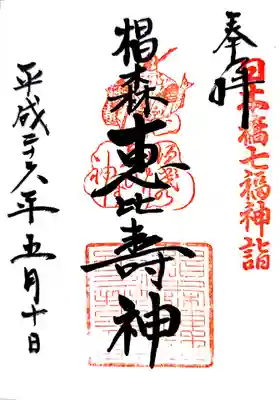 奉拝
日本橋七福神詣
椙森恵比寿神
平成二十六年五月十日